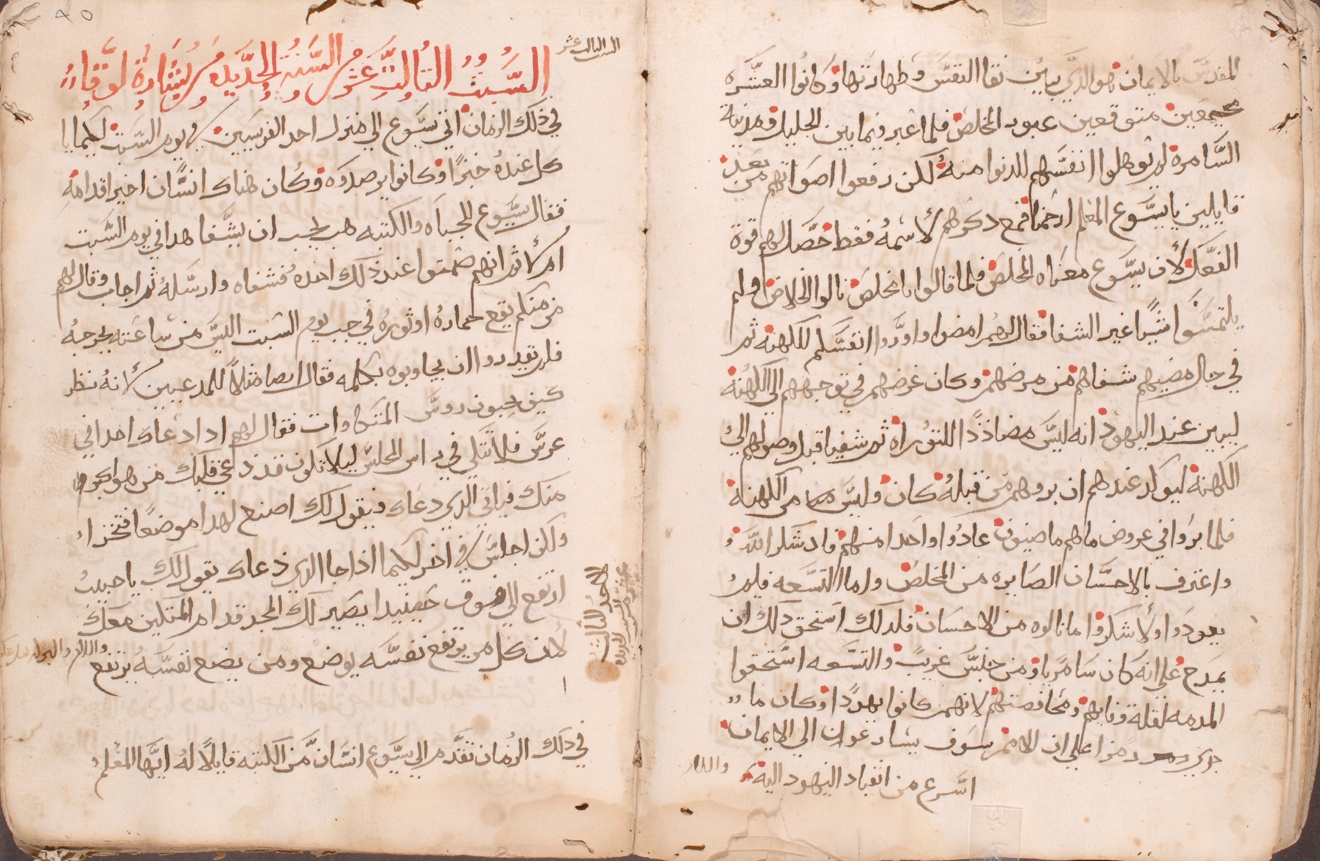 المقدس بالايمان هو الذي يباين نقا النفس وطهارتها وكانوا العشره
مجتمعين متوقعين عبور المخلص فلما عبر فيما بين الجليل ومدينة
السامرة لم يوهلوا انفسهم للدنوا منه لكن رفعوا اصواتهم من بعد
قايلين يا يسوع المعلم ارحمنا فمع ذكرهم لاسمه فقط حصل لهم قوة
الفعل لان يسوع معناه المخلص فلما قالوا يا مخلص نالوا الخلاص ولم
يلتمسوا شيا غير الشفا فقال لهم امضوا واوروا انفسكم للكهنه ثم
في حال مضيهم شفاهم من مرضهم وكان غرضه في توجيههم الي الكهنه
ليبين عند اليهود انه ليس مضاددا للتوراه ثم شفيا قبل وصولهم الي
الكهنة ليوكد عندهم ان بروهم من قبله كان وليس من الكهنة
فلما بروا في عروض ما هم ماضيون عادوا واحدا منهم فاد شكر الله
واعترف بالاحسان الصايره من المخلص واما التسعه فلم
يعودوا ولا شكروا ما نالوه من الاحسان فلدلك استحق دلك ان
يمدح علي انه كان سامريا ومن جنس غريب والتسعه استحقوا
المدمه لقلة وفايهم ومخافضتهم لانهم كانوا يهودا وكان ما
جري رمزا علي ان الامم سوف يسارعون الي الايمان
اسرع من انقياد اليهود اليه
السبت الثالث عشر
السبت الثالث عشر من السنة الجديده من بشارة لوقا
في دلك الزمان اتي يسوع الي منزل احد الفريسين في يوم السبت لكيما يا
كل عنده خبزا وكانوا يرصدوه وكان هناك انسان احبن اقدامه
فقال يسوع للحباه والكتبه هل يجب ان يشفا هدا في يوم السبت
ام لا ثم انهم صمتوا عند دلك اخده فشفاه وارسله ثم اجاب وقال لهم
من منكم يقع حماره او ثوره في جب يوم السبت اليس من ساعته يخرجه
فلم يقدروا ان يجاوبوه بكلمه فقال ايضا مثلا للمدعيين لانه نظر
كيف يحبون روس المتكاوات فقال لهم ادا دعاك احد الي
عرس فلا تتكي في راس المجلس ليلا تكون قد دعي هناك من هو اكرم
منك فياتي الدي دعاك فيقول لك اصنع لهدا موضعا فتخزا
ولكن اجلس في اخر لكيما ادا جا الدي دعاك يقول لك يا حبيب
ارتفع الي فوق حينيد يصير لك المجد قدام المتكين معك
لان كل من يرفع نفسه يوضع ومن يضع نفسه يرتفع
الاحد الثالث
في دلك الزمان تقدم الي يسوع انسان من الكتبه قايلا له ايها المعلم